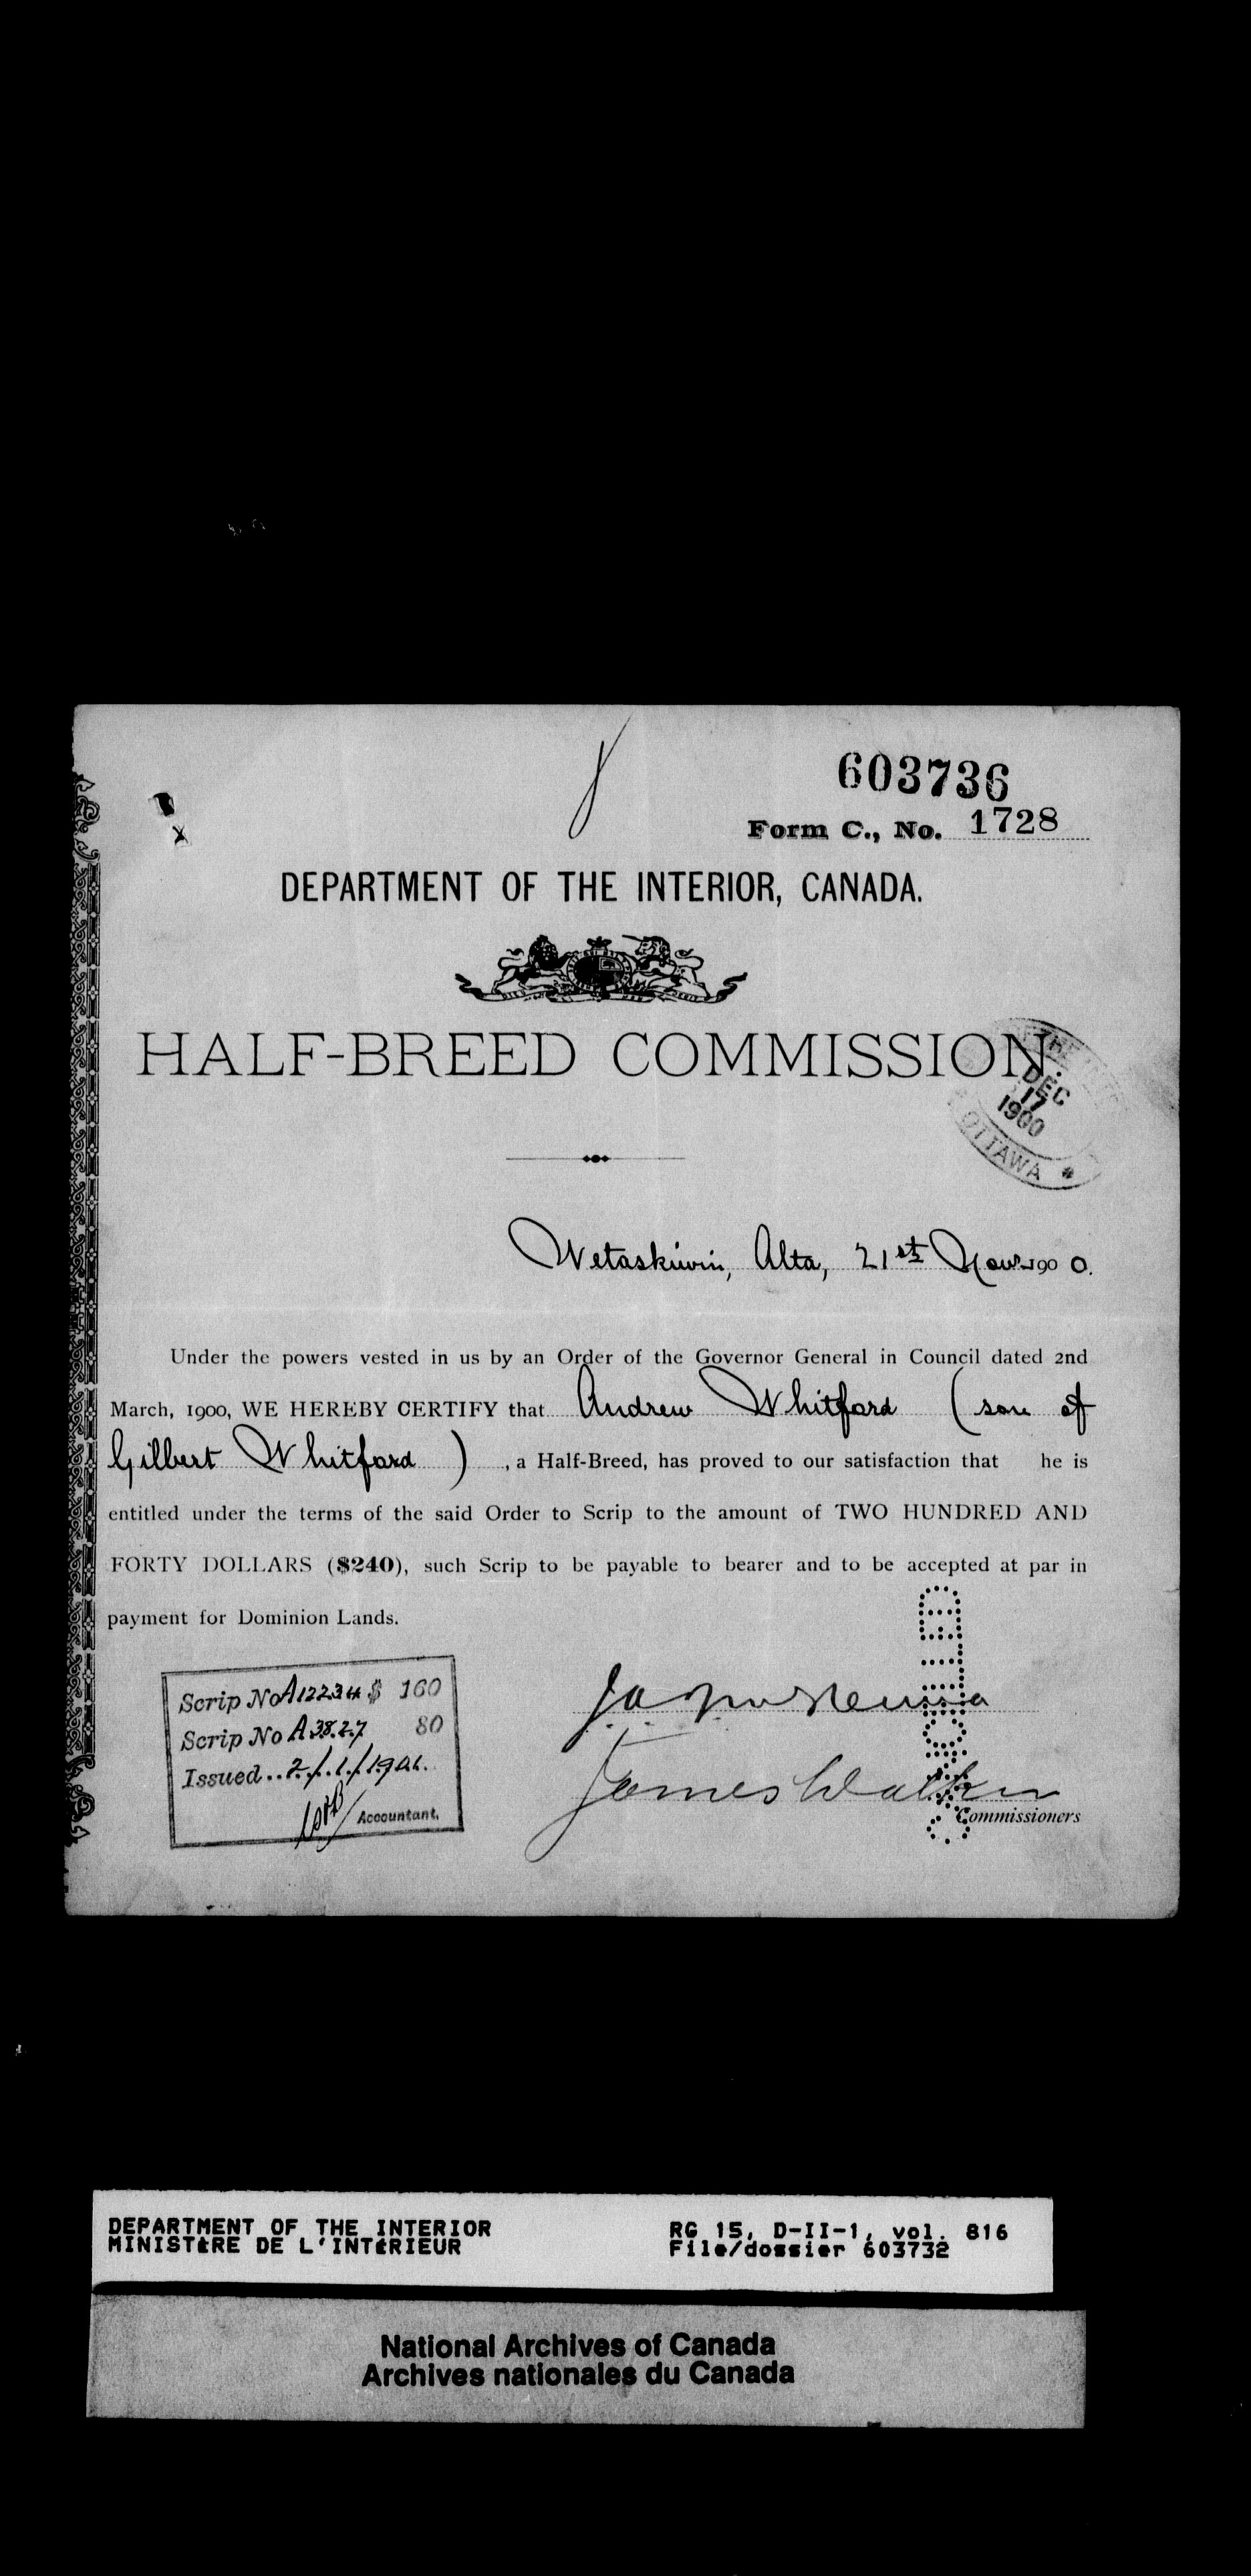 603736
Form C., No. 1728
DEPARTMENT OF THE INTERIOR, CANADA.
HALF-BREED COMMISSION.
OF THE
DEC
17
1900
OTTAWA *
Wetaskiwin, Alta, 21st Novr 1900.
Under the powers vested in us by an Order of the Governor General in Council dated 2nd
March, 1900, WE HEREBY CERTIFY that Andrew Whitford (son of
Gilbert Whitford ) , a Half-Breed, has proved to our satisfaction that he is
entitled under the terms of the said Order to Scrip to the amount of TWO HUNDRED AND
FORTY DOLLARS ($240), such Scrip to be payable to bearer and to be accepted at par in
payment for Dominion Lands.
Scrip No A12234 $ 160
Scrip No A3827 80
Issued..2/1/1901.
Accountant.
James Walker
Commissioners
CANCELLED
DEPARTMENT OF THE INTERIOR
MINISTÈRE DE L'INTÉRIEUR
RG 15, D-II-1, vol. 816
File/dossier 603732
National Archives of Canada
Archives nationales du Canada